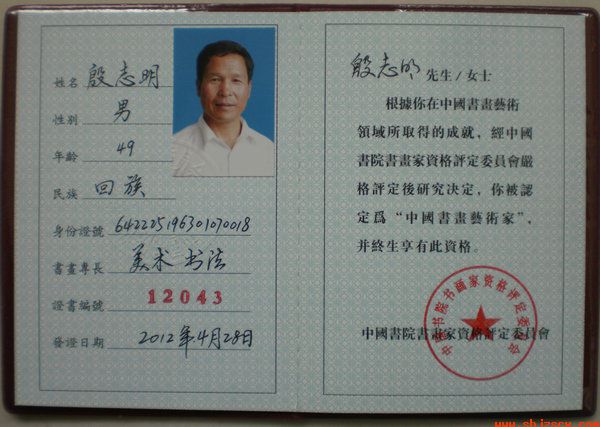 姓名 殷志明
性别 男
年齡 49
民族 回族
身份證號 642225196301070018
書畫專長 美术 书法
證書編號 12043
發證日期 2012年4月28日
殷志明 先生/女士
根據你在中國書畫藝術
領域所取得的成就，經中國
書院書畫家資格評定委員會嚴
格評定後研究決定，你被認
定爲“中國書畫藝術家”，
并終生享有此資格。
中国书院书画家资格评定委员会
中國書院書畫家資格評定委員會